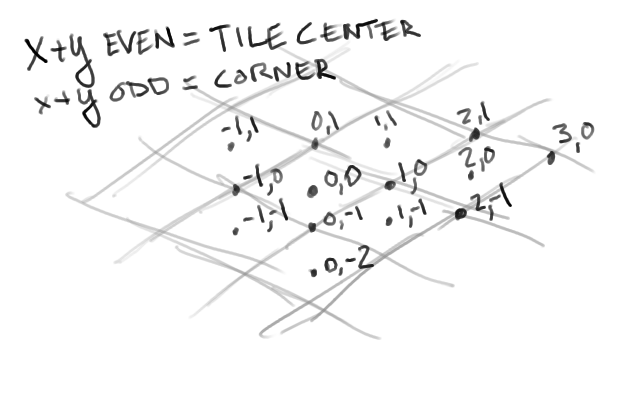 x+y EVEN = TILE CENTER
x+y ODD = CORNER
-1,1
0,1
1,1
2,1
3,0
-1,0
0,0
1,0
2,0
-1,-1
0,-1
1,-1
2,-1
0,-2